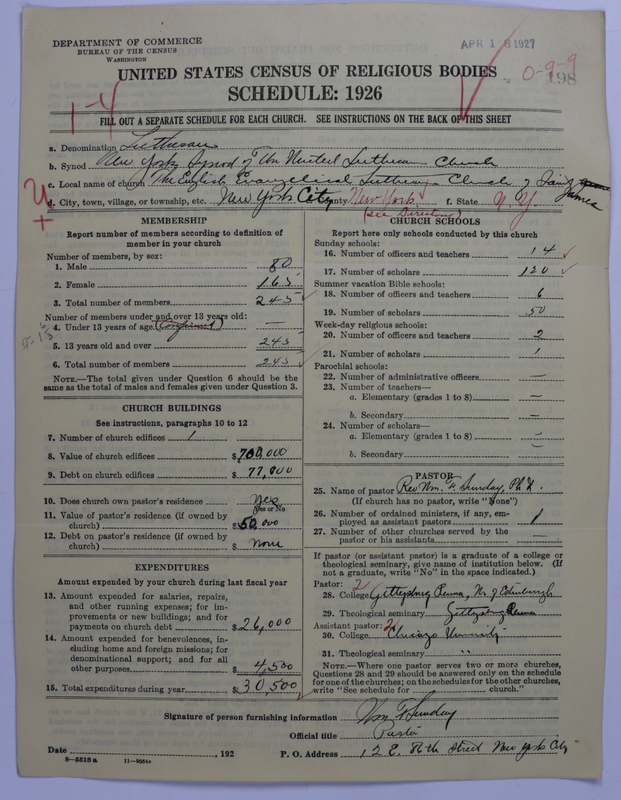 DEPARTMENT OF COMMERCE
BUREAU OF THE CENSUS
WASHINGTON
APR 18 1927
0-9-9
198
UNITED STATES CENSUS OF RELIGIOUS BODIES
SCHEDULE: 1926
1-4
FILL OUT A SEPARATE SCHEDULE FOR EACH CHURCH. SEE INSTRUCTIONS ON THE BACK OF THIS SHEET
a. Denomination Lutheran
b. Synod New York Synod of the United Lutheran Church
c. Local name of church The English Evangelical Lutheran Church of Saint James
d. City, town, village, or township, etc. New York City County New York f. State N. Y.
(see Directions)
MEMBERSHIP
Report number of members according to definition of member in your church
Number of members, by sex:
1. Male 80
2. Female 165
3. Total number of members 245
Number of members under and over 13 years old:
4. Under 13 years of age (Confirmed) —
5. 13 years old and over 245
6. Total number of members 245
NOTE.—The total given under Question 6 should be the same as the total of males and females given under Question 3.
CHURCH BUILDINGS
See instructions, paragraphs 10 to 12
7. Number of church edifices 1
8. Value of church edifices $700,000
9. Debt on church edifices $77,000
10. Does church own pastor's residence Yes
Yes or No
11. Value of pastor's residence (if owned by church) $50,000
12. Debt on pastor's residence (if owned by church) $ None
EXPENDITURES
Amount expended by your church during last fiscal year
13. Amount expended for salaries, repairs, and other running expenses; for improvements or new buildings; and for payments on church debt $26,000
14. Amount expended for benevolences, including home and foreign missions; for denominational support; and for all other purposes $4,500
15. Total expenditures during year $30,500
CHURCH SCHOOLS
Report here only schools conducted by this church
Sunday schools:
16. Number of officers and teachers 14
17. Number of scholars 120
Summer vacation Bible schools:
18. Number of officers and teachers 6
19. Number of scholars 50
Week-day religious schools:
20. Number of officers and teachers 2
21. Number of scholars 1
Parochial schools:
22. Number of administrative officers —
23. Number of teachers—
a. Elementary (grades 1 to 8) —
b. Secondary —
24. Number of scholars—
a. Elementary (grades 1 to 8) —
b. Secondary —
PASTOR
25. Name of pastor Rev Wm. F. Sunday, Ph.D.
(If church has no pastor, write "None")
26. Number of ordained ministers, if any, employed as assistant pastors 1
27. Number of other churches served by the pastor or his assistants —
If pastor (or assistant pastor) is a graduate of a college or theological seminary, give name of institution below. (If not a graduate, write "No" in the space indicated.)
Pastor: 2
28. College Gettysburg Penna, Un. of Edinburgh
29. Theological seminary Gettysburg Penna
Assistant pastor: 2
30. College Chicago University
31. Theological seminary " "
NOTE.—Where one pastor serves two or more churches, Questions 28 and 29 should be answered only on the schedule for one of the churches; on the schedules for the other churches, write "See schedule for ........ church."
Signature of person furnishing information Wm F Sunday
Official title Pastor
Date ........, 192
P. O. Address 12 E. 86th Street New York City
8—5518 a 11—9054a